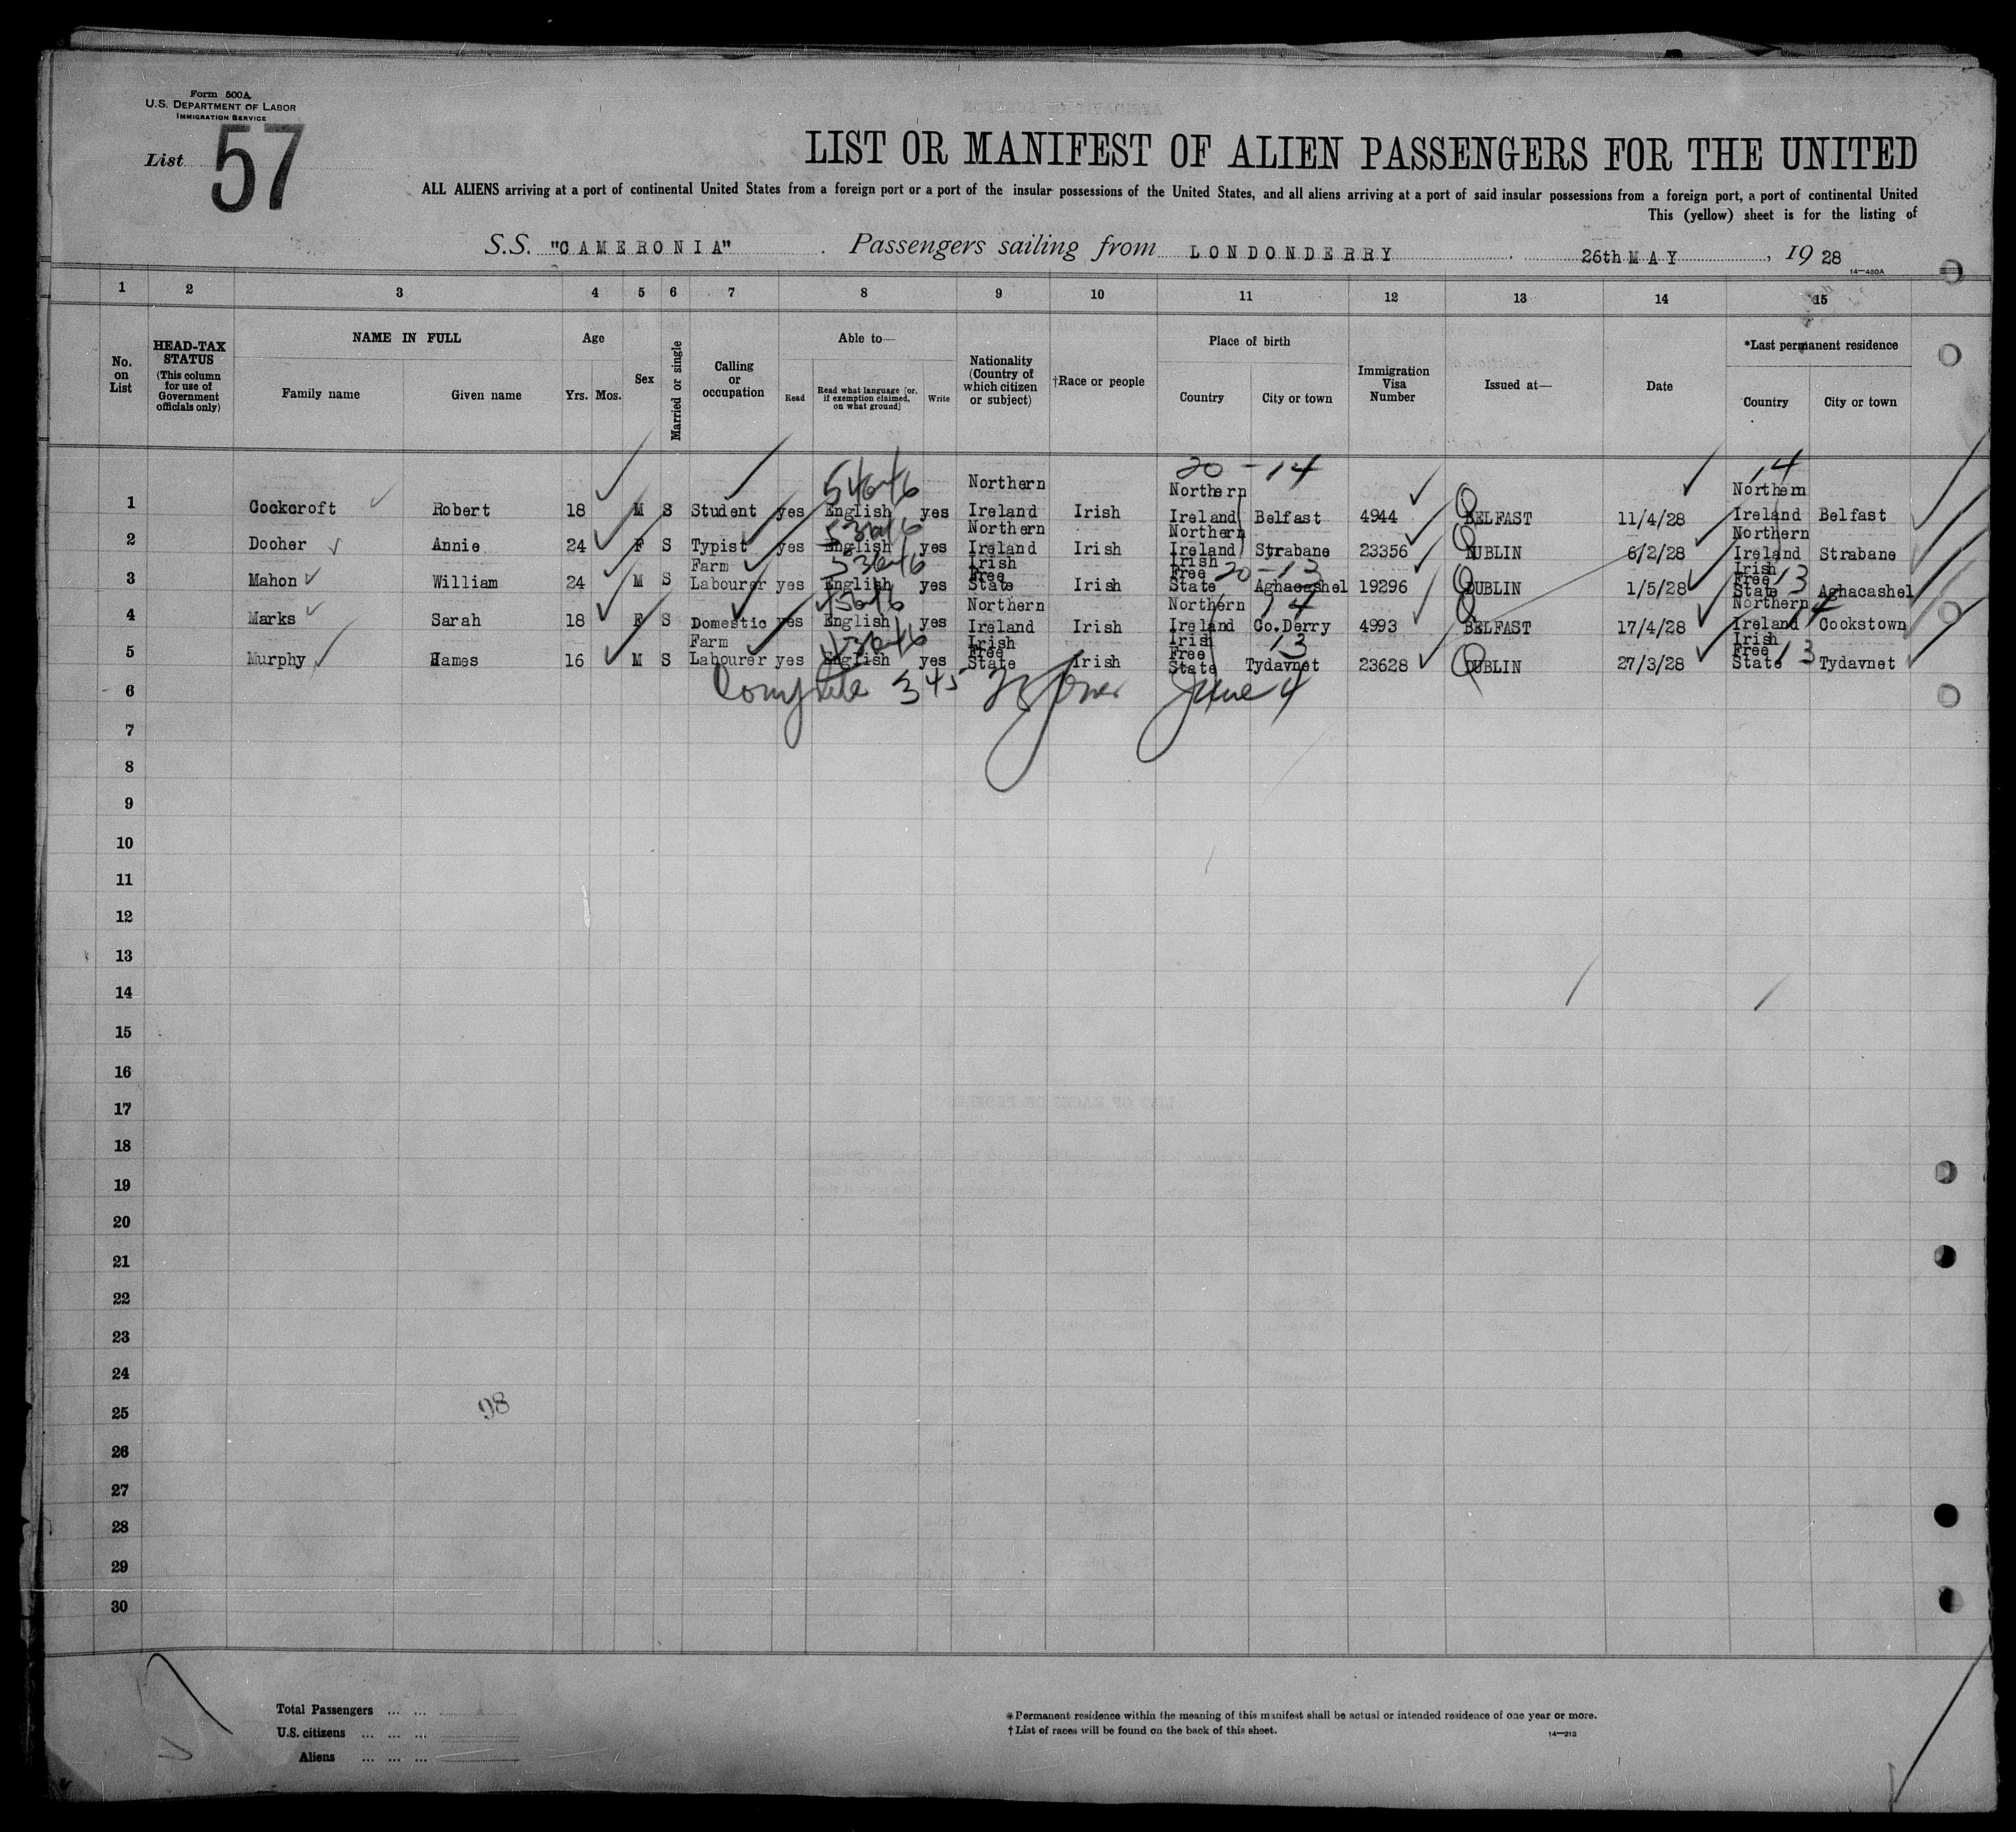 Form 500A
U.S. DEPARTMENT OF LABOR
IMMIGRATION SERVICE
List 57
LIST OR MANIFEST OF ALIEN PASSENGERS FOR THE UNITED
ALL ALIENS arriving at a port of continental United States from a foreign port or a port of the insular possessions of the United States, and all aliens arriving at a port of said insular possessions from a foreign port, a port of continental United
This (yellow) sheet is for the listing of
S.S. "CAMERONIA" . Passengers sailing from LONDONDERRY . 26th MAY , 19 28
14—430A
1 2 3 4 5 6 7 8 9 10 11 12 13 14 15
No. on List
HEAD-TAX STATUS (This column for use of Government officials only)
NAME IN FULL
Family name Given name
Age
Yrs. Mos.
Sex
Married or single
Calling or occupation
Able to—
Read Read what language [or, if exemption claimed, on what ground] Write
Nationality (Country of which citizen or subject)
†Race or people
Place of birth
Country City or town
Immigration Visa Number
Issued at—
Date
*Last permanent residence
Country City or town
20 - 14 14
1 Cockcroft Robert 18 M S Student yes English yes Northern Ireland Irish Northern Ireland Belfast 4944 BELFAST 11/4/28 Northern Ireland Belfast
2 Dooher Annie 24 F S Typist yes English yes Northern Ireland Irish Northern Ireland Strabane 23356 DUBLIN 6/2/28 Northern Ireland Strabane
3 Mahon William 24 M S Farm Labourer yes English yes Irish Free State Irish Irish Free State 20-13 Aghacashel 19296 DUBLIN 1/5/28 Irish Free State 13 Aghacashel
4 Marks Sarah 18 F S Domestic yes English yes Northern Ireland Irish Northern Ireland 14 Co.Derry 4993 BELFAST 17/4/28 Northern Ireland 14 Cookstown
5 Murphy Hames 16 M S Farm Labourer yes English yes Irish Free State Irish Irish Free State 13 Tydavnet 23628 DUBLIN 27/3/28 Irish Free State 13 Tydavnet
Complete 345 June 4
6
7
8
9
10
11
12
13
14
15
16
17
18
19
20
21
22
23
24
25
98
26
27
28
29
30
Total Passengers ... ...
U.S. citizens ... ... ...
Aliens ... ... ...
*Permanent residence within the meaning of this manifest shall be actual or intended residence of one year or more.
†List of races will be found on the back of this sheet.
14—213